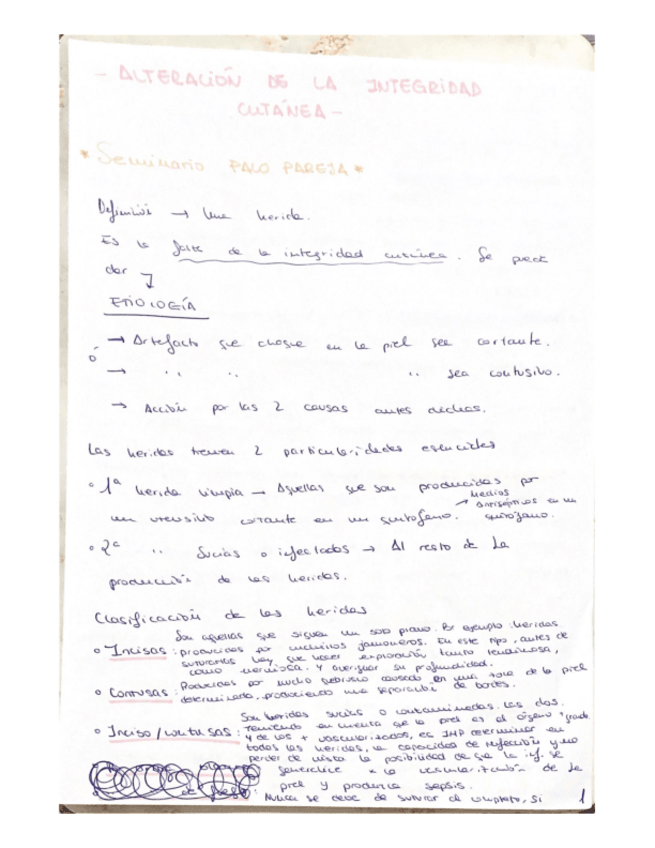 - ALTERACIÓN DE LA INTEGRIDAD
CUTÁNEA -
* Seminario PACO PAREJA *
Definición → Una herida.
Es la falta de la integridad cutánea. Se puede
dar ↴
ETIOLOGÍA
→ Artefacto que choque en la piel sea cortante.
ó
→ " " " sea contusivo.
→ Acción por las 2 causas antes dichas.
Las heridas tienen 2 particularidades esenciales
• 1ª herida limpia → Aquellas que son producidas por
un utensilio cortante en un quirófano. → Medios antisépticos en un quirófano.
• 2ª " Sucias o infectadas → Al resto de la
producción de las heridas.
Clasificación de las heridas
• Incisas: Son aquellas que siguen un solo plano. Por ejemplo: heridas
producidas por cuchillos jamoneros. En este tipo, antes de
suturarlas hay que hacer exploración, tanto tendinosa,
como nerviosa. Y averiguar su profundidad.
• Contusas: Producidas por mucho causado en una zona de la piel
determinada, produciendo una separación de bordes.
• Inciso/contusas: Son heridas sucias o contaminadas. Las dos.
Teniendo en cuenta que la piel es el órgano + grande
y de los + vascularizados, es IMP determinar en
todas las heridas, la capacidad de infección y no
perder de vista la posibilidad de que la inf. se
generalice x la vascularización de la
piel y produzca sepsis.
Nunca se debe de suturar al completo, si
1